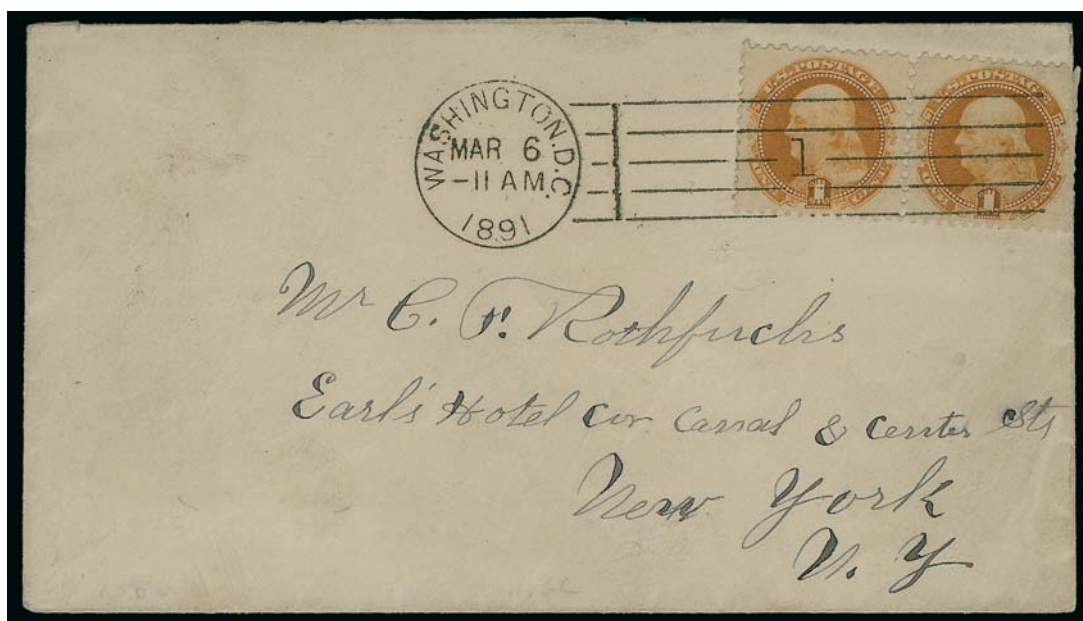 WASHINGTON, D.C.
MAR 6
-11 AM
1891
1
U.S. POSTAGE
ONE CENT
1
U.S. POSTAGE
ONE CENT
1
Mr C. F. Rothfuchs
Earl's Hotel cor. Canal & Center Sts
New York
N. Y